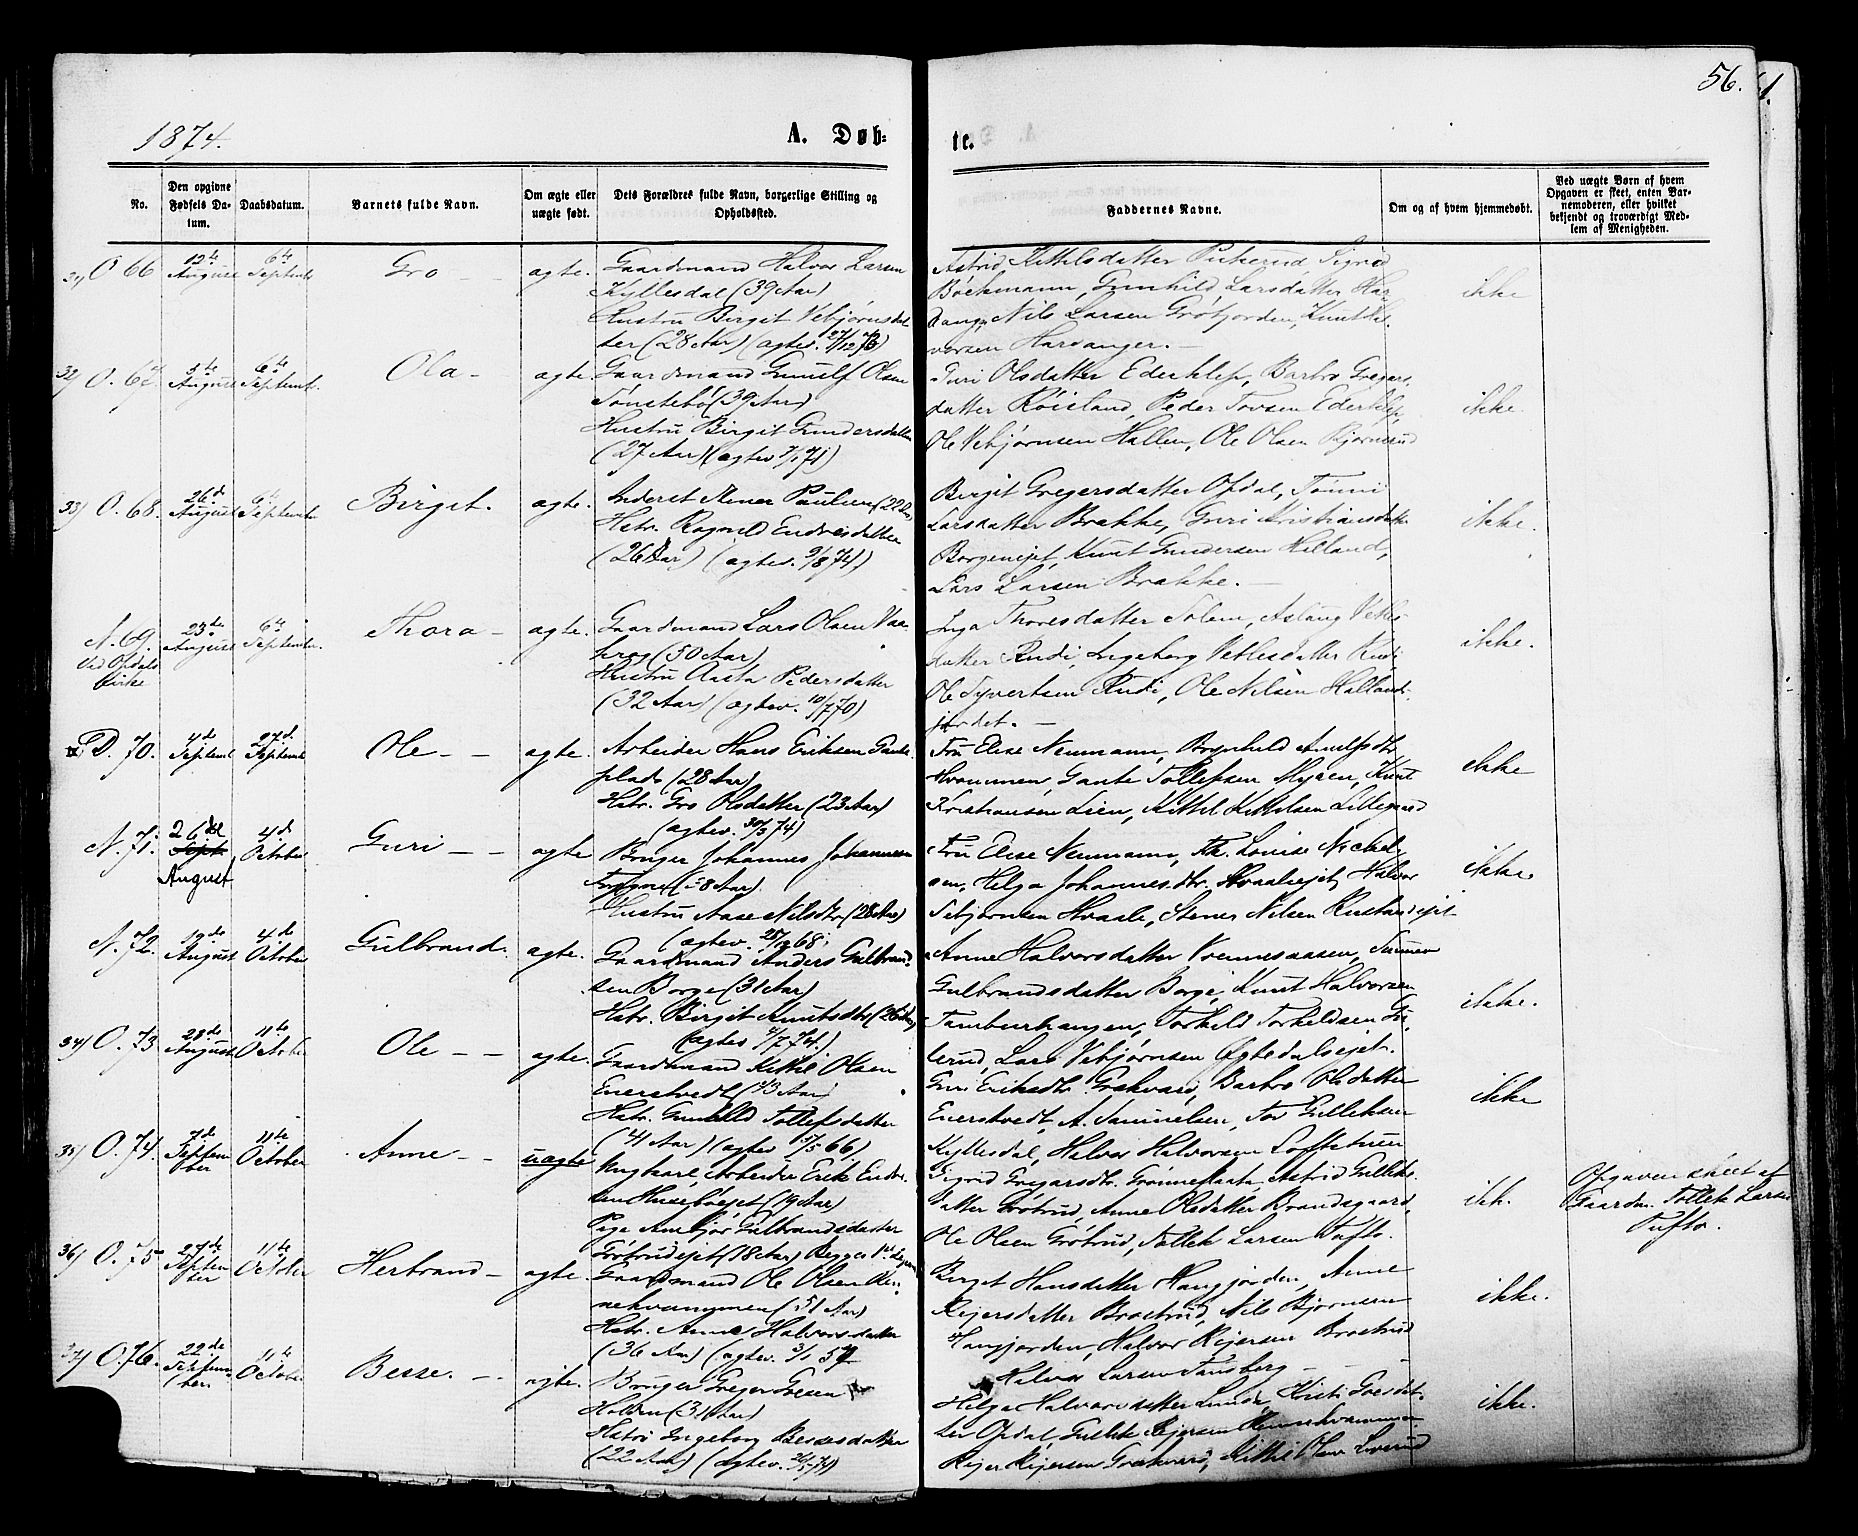 56.
1874.
A. Døb-
te.
No.
Den opgivne
Fødsels Da-
tum.
Daabsdatum.
Barnets fulde Navn.
Om ægte eller
uægte født.
Dets Forældres fulde Navn, borgerlige Stilling og
Opholdssted.
Faddernes Navne.
Om og af hvem hjemmedøbt.
Ved uægte Børn af hvem
Opgaven er skeet, enten Bar-
nemoderen, eller hvilket
bekjendt og troværdigt Med-
lem af Menigheden.
31) O 66
12te August
6te Septembr
Gro
ægte.
Gaardmand Halvor Larsen
Kyllesdal (39 Aar)
Hustru Birgit Vebjørnsdat
ter (28 Aar) (ægtev. 27/12 73)
Astrid Kittilsdatter Sigrid
Bøckmann, Gunhild Larsdatter Har
dang, Nils Larsen Grøfjorden, Knut Hal
vorsen Hardanger.
ikke
32) O. 67.
5te August
6te Septembr.
Ola
ægte.
Gaardmand Gunulf Olsen
Tønstebø (39 Aar)
Hustru Birgit Gundersdatter
(27 Aar) (ægtev 7/1 71)
Turi Olsdatter Ederklep, Barbro Gregers-
datter Røisland, Peder Tovsen Ederklep,
Ole Vebjørnsen Hallen, Ole Olsen Bjørnerud
ikke.
33) O. 68.
26de August
6te Septembr
Birgit.
ægte.
Inderst Paulsen (22 Aar)
Hstr. Ragnild Endresdatter
(26 Aar) (ægtev. 9/8 74)
Birgit Gregersdatter Opdal, Tønni
Larsdatter Brække, Guri Kristiansdatter
Borgeneiet, Knut Gundersen Helland,
Lars Larsen Brække.
ikke.
N. 69.
Ved Opdals
Kirke
23de August
6te Septembr.
Thora
ægte.
Gaardmand Lars Olsen
(50 Aar)
Hustru Aasta Pedersdatter
(32 Aar) (ægtev. 10/7 70)
Inga Thoresdatter Solem, Aslaug Vetles
datter Rudi, Ingeborg Vetlesdatter Rudi
Ole Syvertsen Rudi, Ole Nilsen Halland-
jordet.
ikke.
D. 70.
4de Septemb
27d. Septemb
Ole
ægte.
Arbeider Hans Eriksen
plads (28 Aar)
Hstr. Gro Olsdatter (23 Aar)
(ægtev. 30/3 74)
Fru Elise Neumann, Brynhild Arnulfsdtr
Hvammen, Gaute Tollefsen Myren, Knut
Kristiansen Lien, Kittil Kittilsen Lillegaard
ikke
N. 71.
26de
Sept.
August
4d October
Guri
ægte
Bruger Johannes Johannesen
Frogne (38 Aar).
Hustru Aase Nilsdtr (28 Aar)
(ægtev. 28/12 68)
Fru Elise Neumann, Frk. Lovise Nickel-
sen, Helga Johannesdtr. Hvaaleeiet, Halvor
Tebjørnsen Hvaale, Stener Nilsen Rustandeiet
ikke.
N. 72.
12de August
4de October
Gulbrand.
ægte.
Gaardmand Anders Gulbrand
sen Borge (31 Aar)
Hstr. Birgit Knutsdtr (26 Aar)
(ægtev 4/7 74.)
Anne Halvorsdatter Vrennesaasen, Gunnor
Gulbrandsdatter Borge, Knut Halvorsen
Tamburhaugen, Torkild Torkildsen Gu
lerud, Lars Vebjørnsen Øygtedalseiet.
ikke.
34) O. 73
28de August
11te October
Ole
ægte.
Gaardmand Kittil Olsen
Enerstvedt (43 Aar)
Hstr. Gunhild Tollefsdatter
(41 Aar) (ægtev 15/5 66)
Guri Eriksdtr. Grøkvard, Barbro Olsdatter
Enerstvedt, A. Samuelsen, Tov Gulleksen
Kyllesdal, Halvor Halvorsen Loftstuen
ikke
35) O. 74.
7de Septem
ber
11te October
Anne
uægte
Ungkarl, Arbeider Erik Endre
sen Husebøeiet (19 Aar)
Pige Annbjør Gulbrandsdatter
Frøtrudeiet (18 Aar) Begges 1st Leierm
Sigrid Gregarsdtr. Grønneflaata, Astrid Gulleks-
datter Frøtrud, Anne Olsdatter Brandsgaard,
Ole Olsen Grøtrud, Tollek Larsen Tufto.
ikk.
Opgaven skeet af
Gaardm. Tollek Larsen
Tufto.
36) O. 75
27de Septem
ber
11te October
Herbrand
ægte.
Gaardmand Ole Olsen
(51 Aar)
Hstr. Anne Halvorsdatter
(36 Aar) (ægtev. 3/1 57
Birget Hansdatter Haugjorden, Anne
Reiersdatter Brostrud, Nils Bjørnsen
Haugjorden, Halvor Reiersen Brostrud
Halvor Larsen Tunsberg
ikke.
37) O. 76.
22de Septem
ber
11te October
Besse.
ægte.
Bruger Greger Goesen
Holden (31 Aar)
Hstr. Ingeborg Bessesdatter
(22 Aar) (ægtev. 74)
Helga Halvorsdatter Lunde, Kristi Goesdat-
ter Opdal, Gullik Reiersen
Reier Reiersen Grøkvard, Kittil Olsen Liverud
ikke.